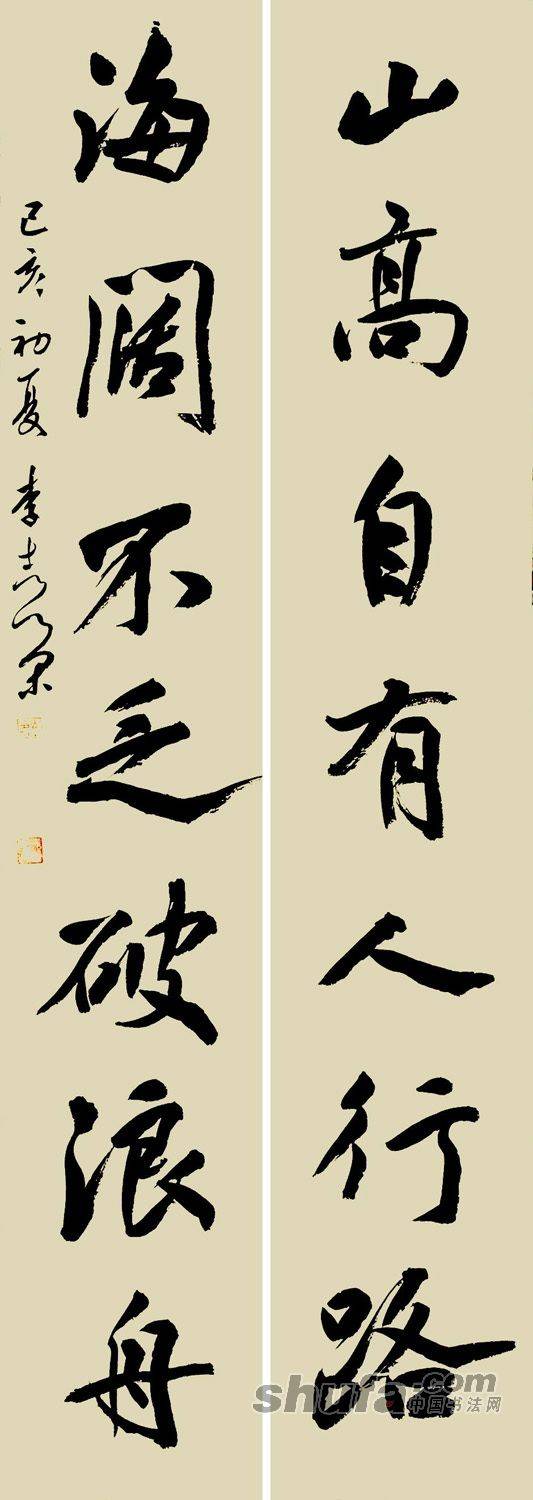 山高自有人行路
海阔不乏破浪舟
己亥初夏 李
shufa.com
中国书法网